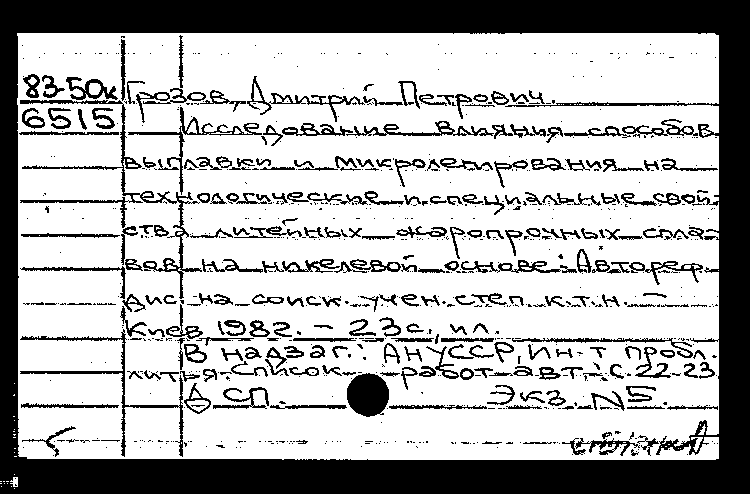 83-50к Грозов, Дмитрий Петрович.
6515 Исследование влияния способов
выплавки и микролегирования на
технологические и специальные свой-
ства литейных жаропрочных спла-
вов на никелевой основе: Автореф.
дис. на соиск. учен. степ. к.т.н. –
Киев, 1982. – 23 с., ил.
В надзаг.: АН УССР, Ин-т пробл.
литья. Список работ авт.: с. 22-23
ДСП. Экз. N5.